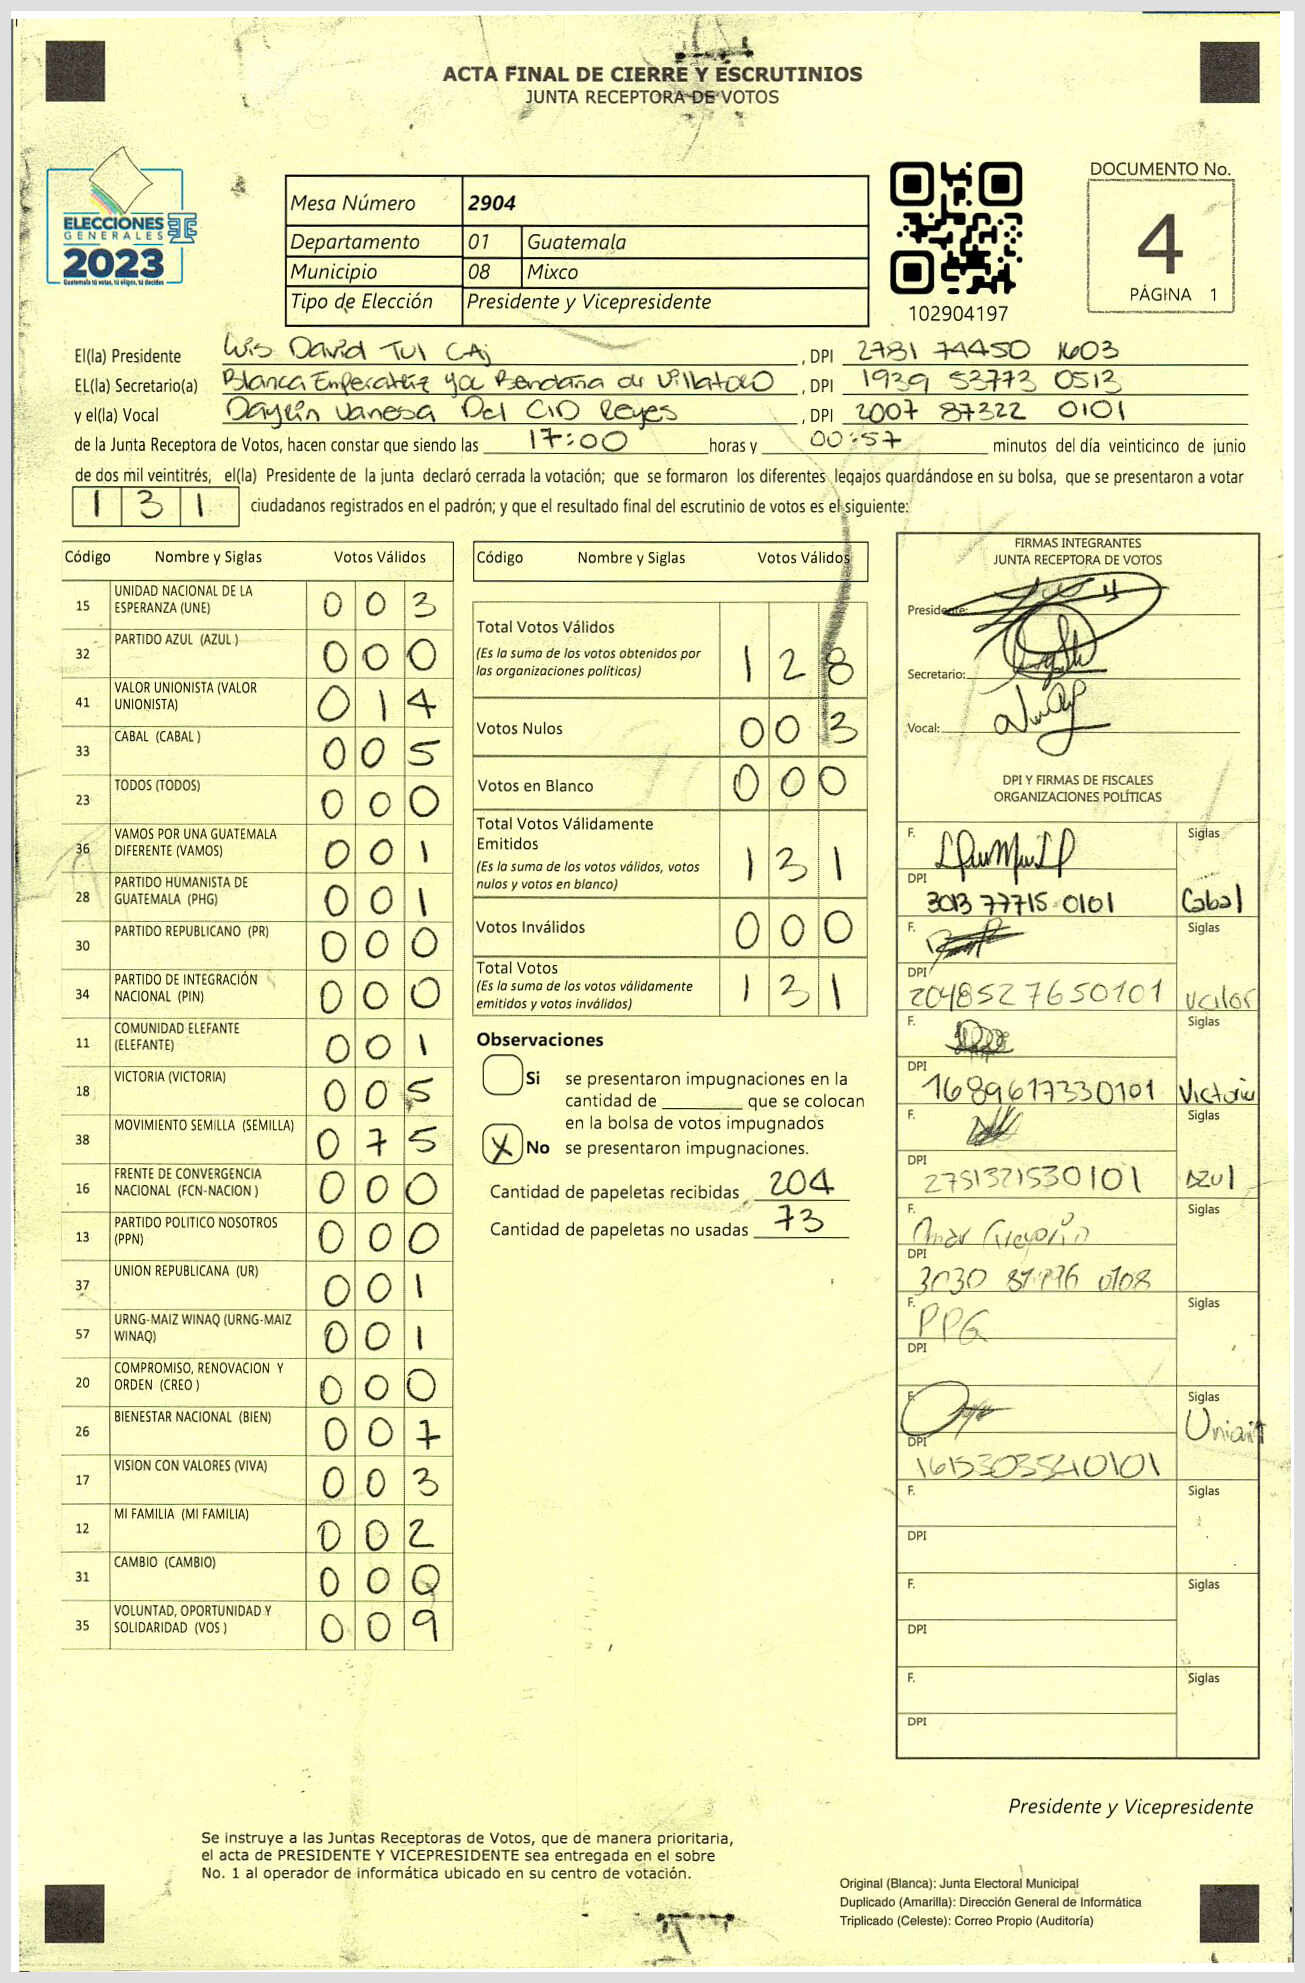 ACTA FINAL DE CIERRE Y ESCRUTINIOS
JUNTA RECEPTORA DE VOTOS
ELECCIONES
GENERALES
2023
Guatemala tú votas, tú eliges, tú decides
Mesa Número 2904
Departamento 01 Guatemala
Municipio 08 Mixco
Tipo de Elección Presidente y Vicepresidente
102904197
DOCUMENTO No.
4
PÁGINA 1
El(la) Presidente Luis David Tul CAj, DPI 2781 74450 1603
EL(la) Secretario(a) Blanca Emperatriz de Villatoro, DPI 1939 53773 0513
y el(la) Vocal Daylin Vanesa Del CID Reyes, DPI 2007 87322 0101
de la Junta Receptora de Votos, hacen constar que siendo las 17:00 horas y 00:57 minutos del día veinticinco de junio
de dos mil veintitrés, el(la) Presidente de la junta declaró cerrada la votación; que se formaron los diferentes legajos guardándose en su bolsa, que se presentaron a votar
131 ciudadanos registrados en el padrón; y que el resultado final del escrutinio de votos es el siguiente:
Código Nombre y Siglas Votos Válidos
15 UNIDAD NACIONAL DE LA ESPERANZA (UNE) 003
32 PARTIDO AZUL (AZUL ) 000
41 VALOR UNIONISTA (VALOR UNIONISTA) 014
33 CABAL (CABAL ) 005
23 TODOS (TODOS) 000
36 VAMOS POR UNA GUATEMALA DIFERENTE (VAMOS) 001
28 PARTIDO HUMANISTA DE GUATEMALA (PHG) 001
30 PARTIDO REPUBLICANO (PR) 000
34 PARTIDO DE INTEGRACIÓN NACIONAL (PIN) 000
11 COMUNIDAD ELEFANTE (ELEFANTE) 001
18 VICTORIA (VICTORIA) 005
38 MOVIMIENTO SEMILLA (SEMILLA) 075
16 FRENTE DE CONVERGENCIA NACIONAL (FCN-NACION ) 000
13 PARTIDO POLITICO NOSOTROS (PPN) 000
37 UNION REPUBLICANA (UR) 001
57 URNG-MAIZ WINAQ (URNG-MAIZ WINAQ) 001
20 COMPROMISO, RENOVACION Y ORDEN (CREO ) 000
26 BIENESTAR NACIONAL (BIEN) 007
17 VISION CON VALORES (VIVA) 003
12 MI FAMILIA (MI FAMILIA) 002
31 CAMBIO (CAMBIO) 000
35 VOLUNTAD, OPORTUNIDAD Y SOLIDARIDAD (VOS ) 009
Código Nombre y Siglas Votos Válidos
Total Votos Válidos 128
(Es la suma de los votos obtenidos por
las organizaciones políticas)
Votos Nulos 003
Votos en Blanco 000
Total Votos Válidamente
Emitidos 131
(Es la suma de los votos válidos, votos
nulos y votos en blanco)
Votos Inválidos 000
Total Votos 131
(Es la suma de los votos válidamente
emitidos y votos inválidos)
Observaciones
Si se presentaron impugnaciones en la
cantidad de ________ que se colocan
en la bolsa de votos impugnados
X No se presentaron impugnaciones.
Cantidad de papeletas recibidas 204
Cantidad de papeletas no usadas 73
FIRMAS INTEGRANTES
JUNTA RECEPTORA DE VOTOS
Presidente:
Secretario:
Vocal:
DPI Y FIRMAS DE FISCALES
ORGANIZACIONES POLÍTICAS
F. Siglas
DPI 3013 77715 0101 Cabal
F. Siglas
DPI 2048527650101 Valor
F. Siglas
DPI 1689617330101 Victoria
F. Siglas
DPI 2751321530101 AZUl
F. Siglas
DPI
F. PPG Siglas
DPI
F. Siglas
DPI 1615303540101
F. Siglas
DPI
F. Siglas
DPI
F. Siglas
DPI
Presidente y Vicepresidente
Se instruye a las Juntas Receptoras de Votos, que de manera prioritaria,
el acta de PRESIDENTE Y VICEPRESIDENTE sea entregada en el sobre
No. 1 al operador de informática ubicado en su centro de votación.
Original (Blanca): Junta Electoral Municipal
Duplicado (Amarilla): Dirección General de Informática
Triplicado (Celeste): Correo Propio (Auditoría)